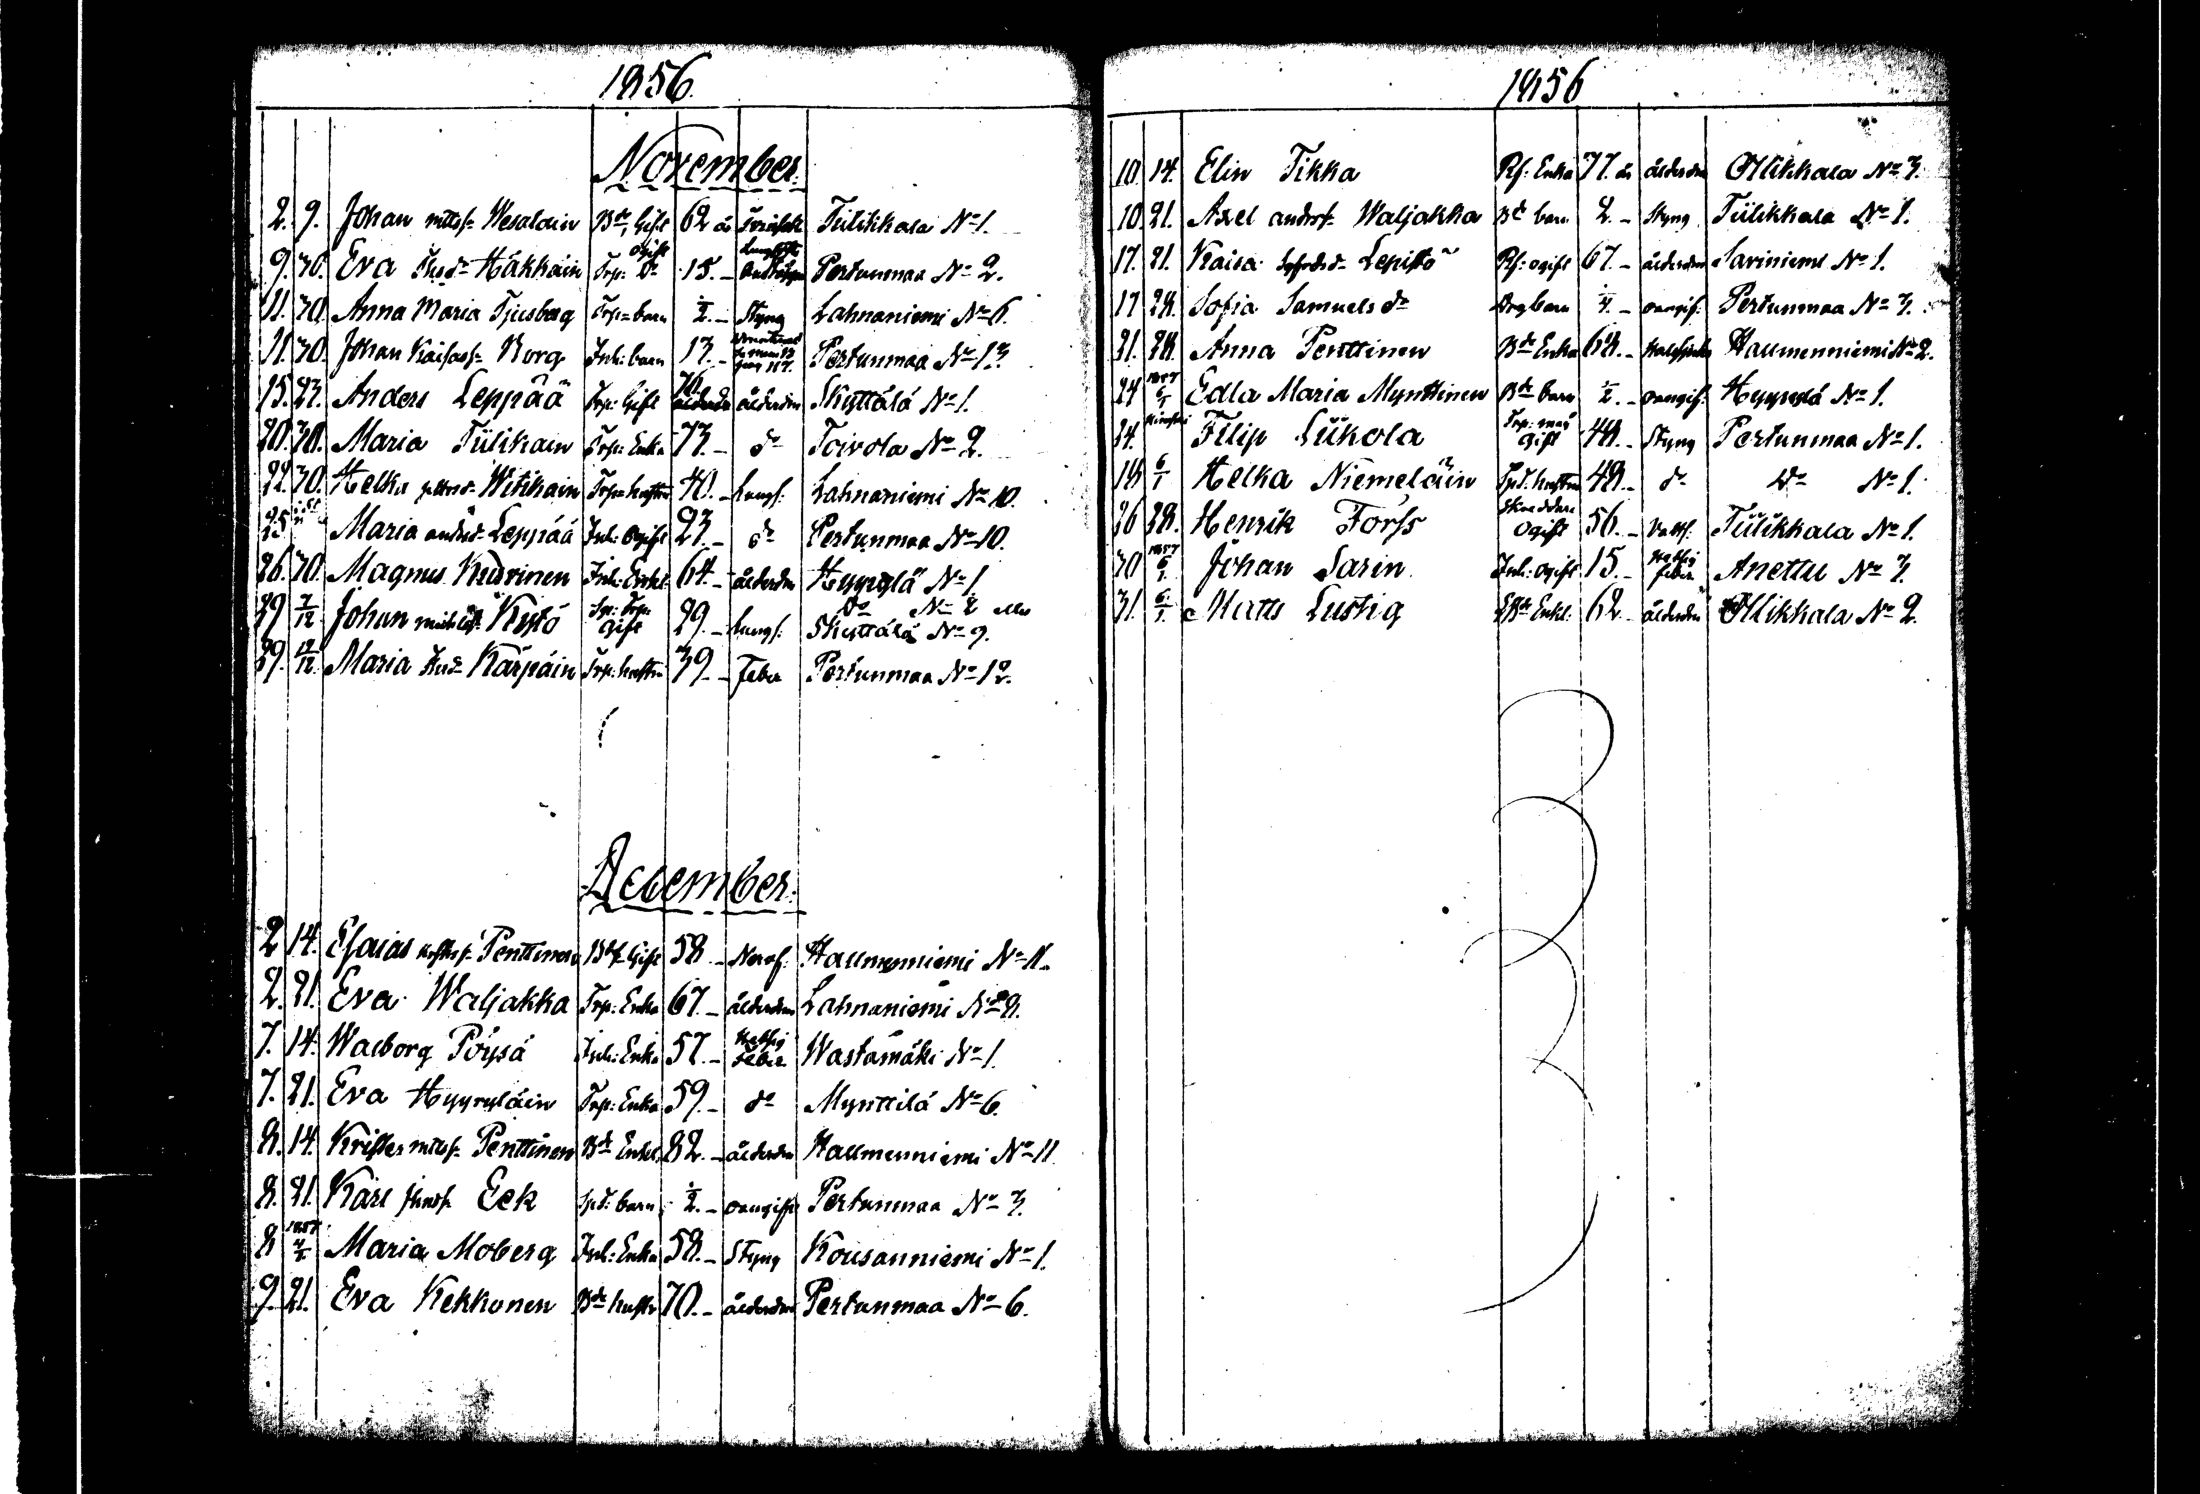 1856.
November.
2. 9. Johan mtss. Wesalain Bd. Gift 62 år Tvinsot Tiilikkala No 1.
9. 30. Eva Jhsdr Häkkäin Trp: ogift dr 15. – Pertunmaa No 2.
11. 30. Anna Maria Tjusberg Trp: barn ½. – Styng Lahnaniemi No 6.
11. 30. Johan Kaifass. Korg Inh: barn 13. – Pertunmaa No 13
15. 23. Anders Leppää Trp: Gift 76. ålderdm Skyttälä No 1.
20. 30. Maria Tiilikain Trp: Enka 73. – do Toivola No 2.
22. 30. Helka Witikain Trp: hustru 40. – Lungs: Lahnaniemi No 10.
25. Maria andsdr Leppää Inh: ogift 23. – do Pertunmaa No 10.
26. 30. Magnus Kuurinen Inh: Enkl. 64. – ålderdm Hyyrylä No 1.
29 7/12 Johan Kystö Trp: Gift 29. – Lungs: Do No 2 eller Skyttälä No 9.
29. 12/12 Maria Jhsdr Kärpäin Trp: hustru 39. – Feber Pertunmaa No 12.
December.
2 14. Esaias Penttinen Bd. Gift 58 – Nervf: Haumenniemi No 11.
2. 21. Eva Waljakka Trp: Enka 67. – ålderdm Lahnaniemi No 8.
7. 14. Walborg Pöysä Inh: Enka 57. – Hettsig feber Wastamäki No 1.
7. 21. Eva Hyyryläin Trp: Enka 59. – do Mynttilä No 6.
8. 14. Krister mtss. Penttinen Bd. Enkl. 82. – ålderdm Haumenniemi No 11
8. 21. Karl Eek barn ½. – oangift Pertunmaa No 3.
8 1857 4/1 Maria Moberg Inh: Enka 58. – Styng Kousanniemi No 1.
9. 21. Eva Kekkonen Bd. hustru 70. – ålderdm Pertunmaa No 6.
1856
10. 14. Elin Tikka Rf: Enka 77. år ålderdm Ollikkala No 3.
10. 21. Axel anders. Waljakka Bd. barn 2. – Styng Tiilikkala No 1.
17. 21. Kaisa Lepistö Rf: ogift 67. – ålderdom Sarviniemi No 1.
17 28. Sofia Samuelsdr Drg barn – oangif. Pertunmaa No 3.
21. 28. Anna Penttinen Bd. Enka 68. – Haumenniemi No 2.
24 1857 6/1 Edla Maria Mynttinen Bd. barn ½. – oangif. Hyyrylä No 1.
24. Filip Liikola Trp: måg Gift 48. – Styng Pertunmaa No 1.
18 6/1 Helka Niemeläin hustru 48. – do Do No 1.
26 28. Henrik Forss Skräddare ogift 56. – Vatts: Tiilikkala No 1.
30 1857 6/1. Johan Sarin Inh: ogift 15. – Hettsig feber Anettu No 3.
31. 6/1. Matts Lustig Enkl. 62. – ålderdm Ollikkala No 2.